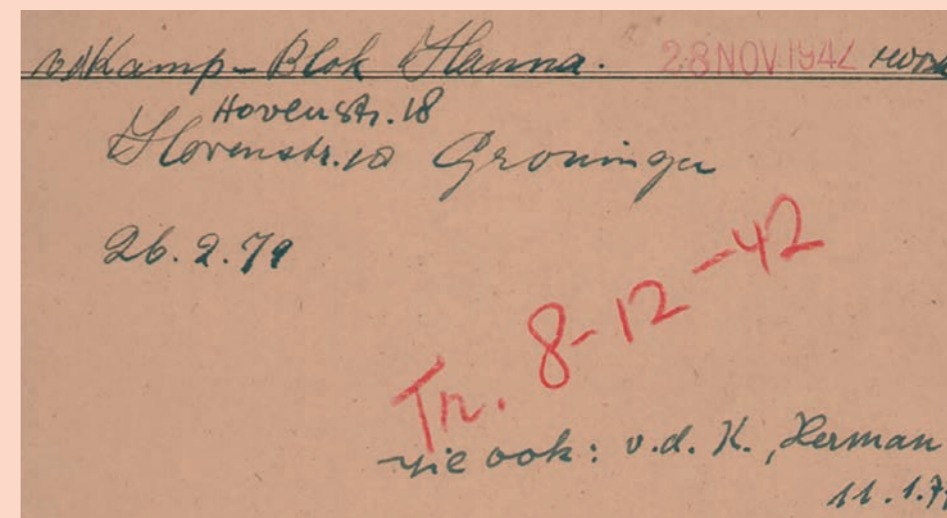 vdKamp-Blok Hanna. 28 NOV. 1942
Hovenstr. 18
Hovenstr. 18 Groningen
26.2.79
Tr. 8-12-42
zie ook: v.d. K., Herman
11.1.7